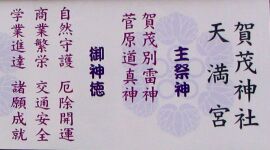 賀茂神社
天満宮
主祭神
賀茂別雷神
菅原道真神
御神徳
自然守護　厄除開運
商業繁栄　交通安全
学業進達　諸願成就